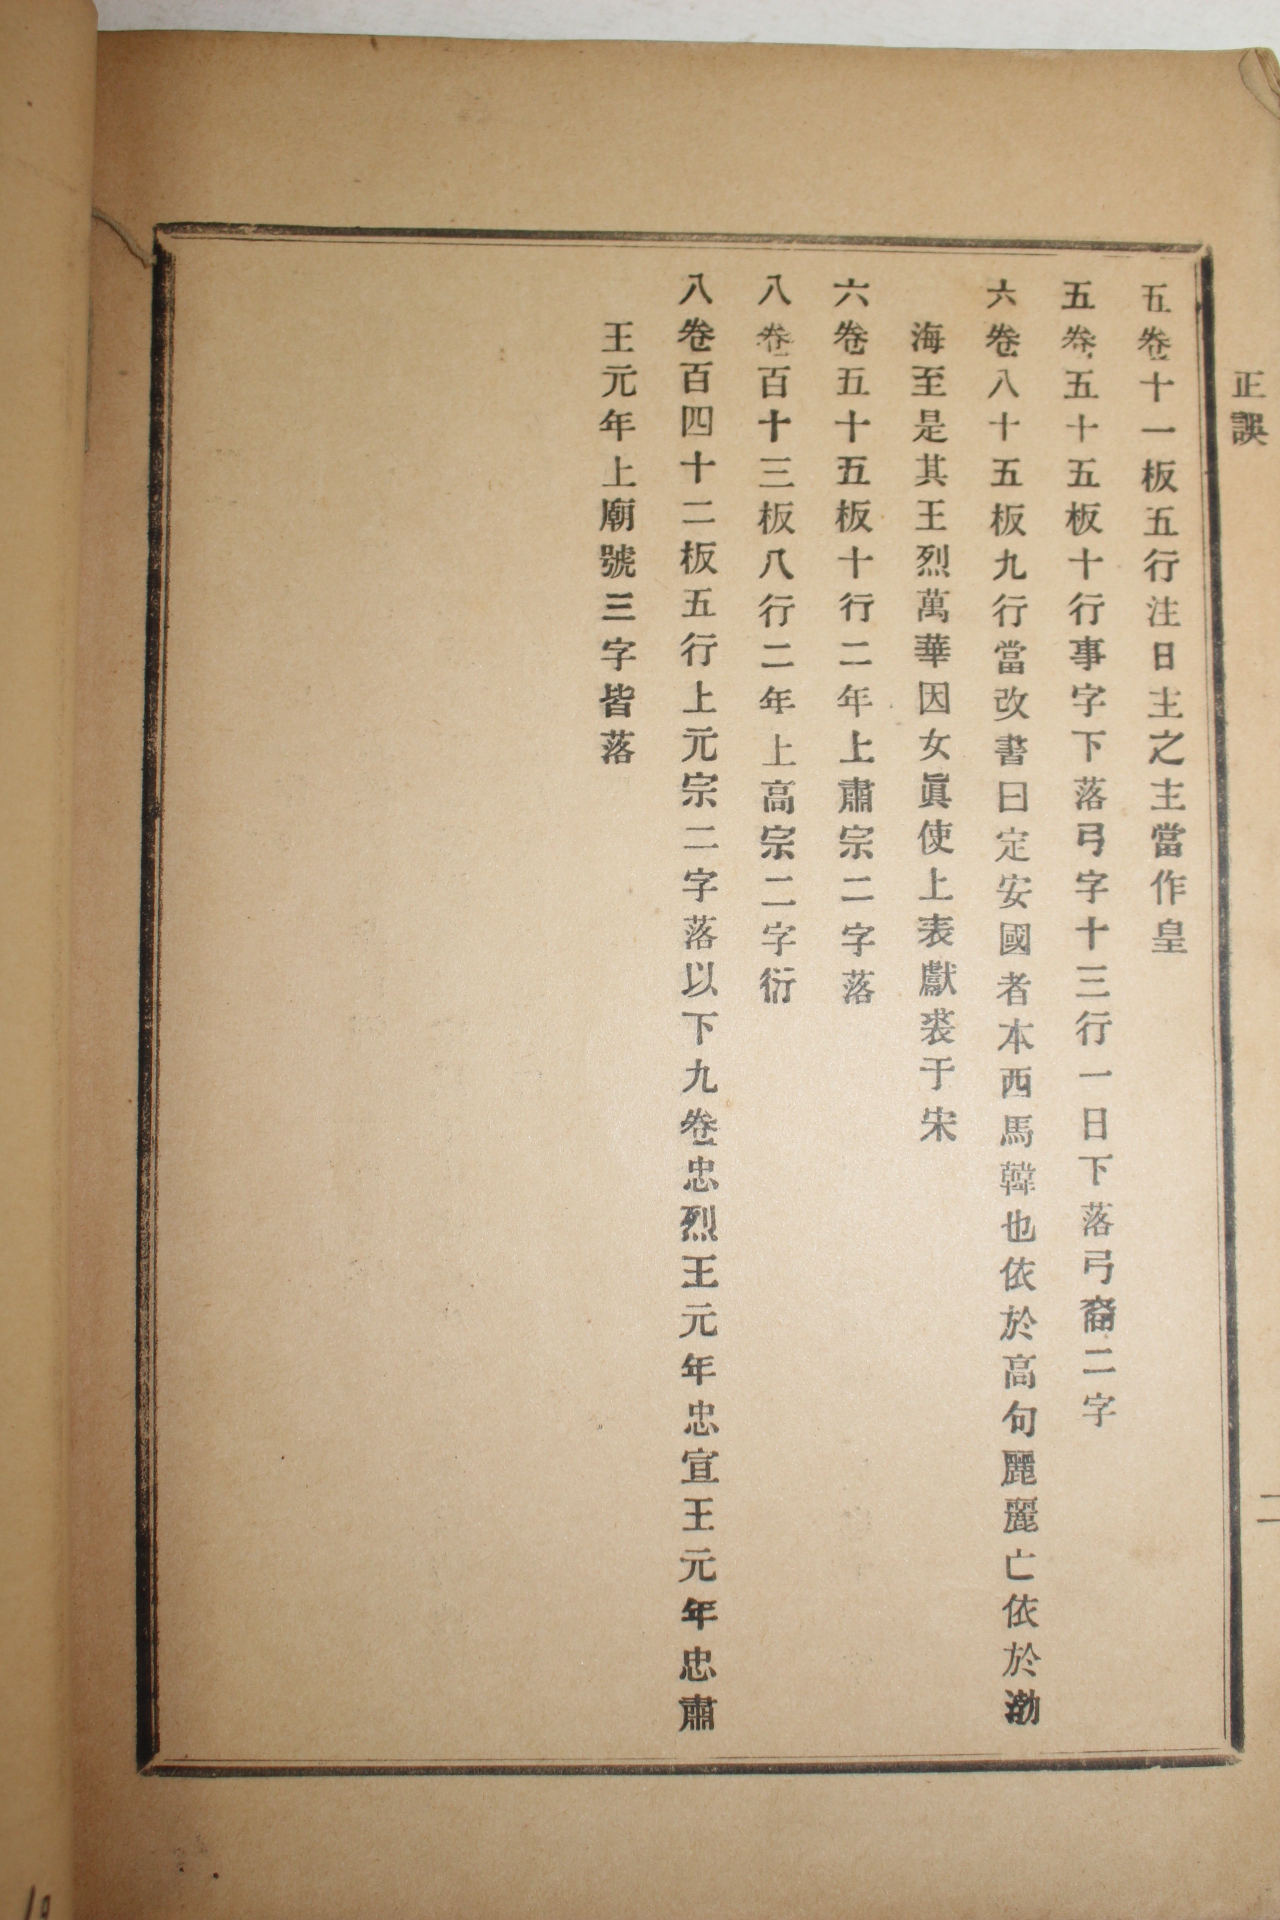 正誤
二
五卷十一板五行注日主之主當作皇
五卷五十五板十行事字下落弓字十三行一日下落弓裔二字
六卷八十五板九行當改書曰定安國者本西馬韓也依於高句麗麗亡依於渤
海至是其王烈萬華因女眞使上表獻裘于宋
六卷五十五板十行二年上肅宗二字落
八卷百十三板八行二年上高宗二字衍
八卷百四十二板五行上元宗二字落以下九卷忠烈王元年忠宣王元年忠肅
王元年上廟號三字皆落
19